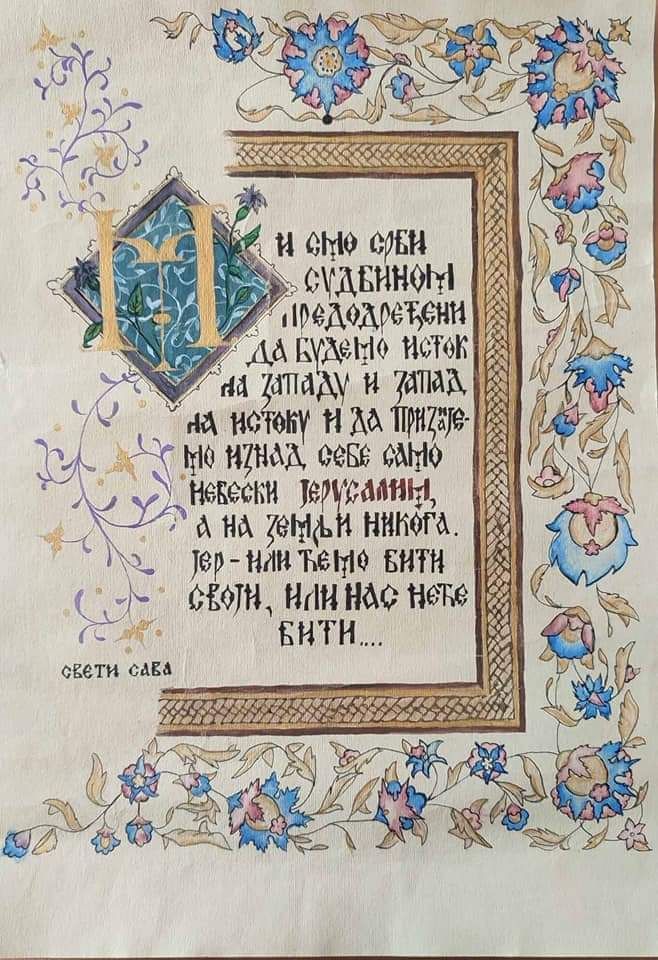 МИ СМО СРБИ
СУДБИНОМ
ПРЕДОДРЕЂЕНИ
ДА БУДЕМО ИСТОК
НА ЗАПАДУ И ЗАПАД
НА ИСТОКУ И ДА ПРИЗНАЈЕ-
МО ИЗНАД СЕБЕ САМО
НЕБЕСКИ ЈЕРУСАЛИМ,
А НА ЗЕМЉИ НИКОГА.
ЈЕР - ИЛИ ЋЕМО БИТИ
СВОЈИ, ИЛИ НАС НЕЋЕ
БИТИ....
СВЕТИ САВА